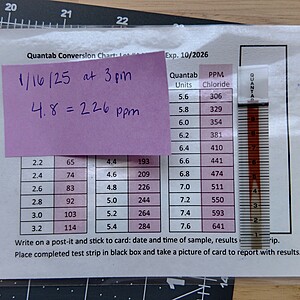 20 21 22
Quantab Conversion Chart: Exp. 10/2026
1/16/25 at 3pm
4.8 = 226 ppm
Quantab Units PPM Chloride
5.6 306
5.8 329
6.0 354
6.2 381
6.4 410
2.2 65 4.4 193 6.6 441
2.4 74 4.6 209 6.8 474
2.6 83 4.8 226 7.0 511
2.8 92 5.0 244 7.2 550
3.0 103 5.2 264 7.4 593
3.2 114 5.4 284 7.6 641
Write on a post-it and stick to card: date and time of sample, results
Place completed test strip in black box and take a picture of card to report with results.